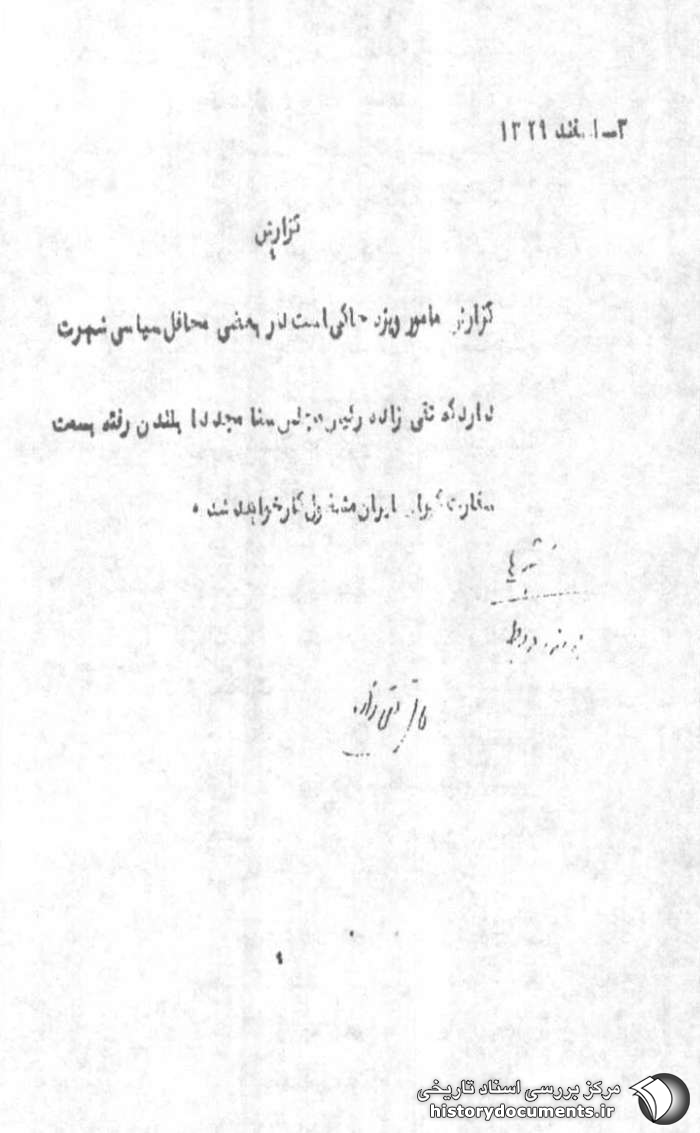 ۳-اسفند ۱۳۲۹
گزارش
گزارش مامور ویژه حاکی است در بعضی محافل سیاسی شهرت
دارد که تقی زاده رئیس مجلس سنا مجددا بلندن رفته بسمت
سفارت کبرای ایران مشغول کار خواهد شد .
تقی زاده
مرکز بررسی اسناد تاریخی
historydocuments.ir